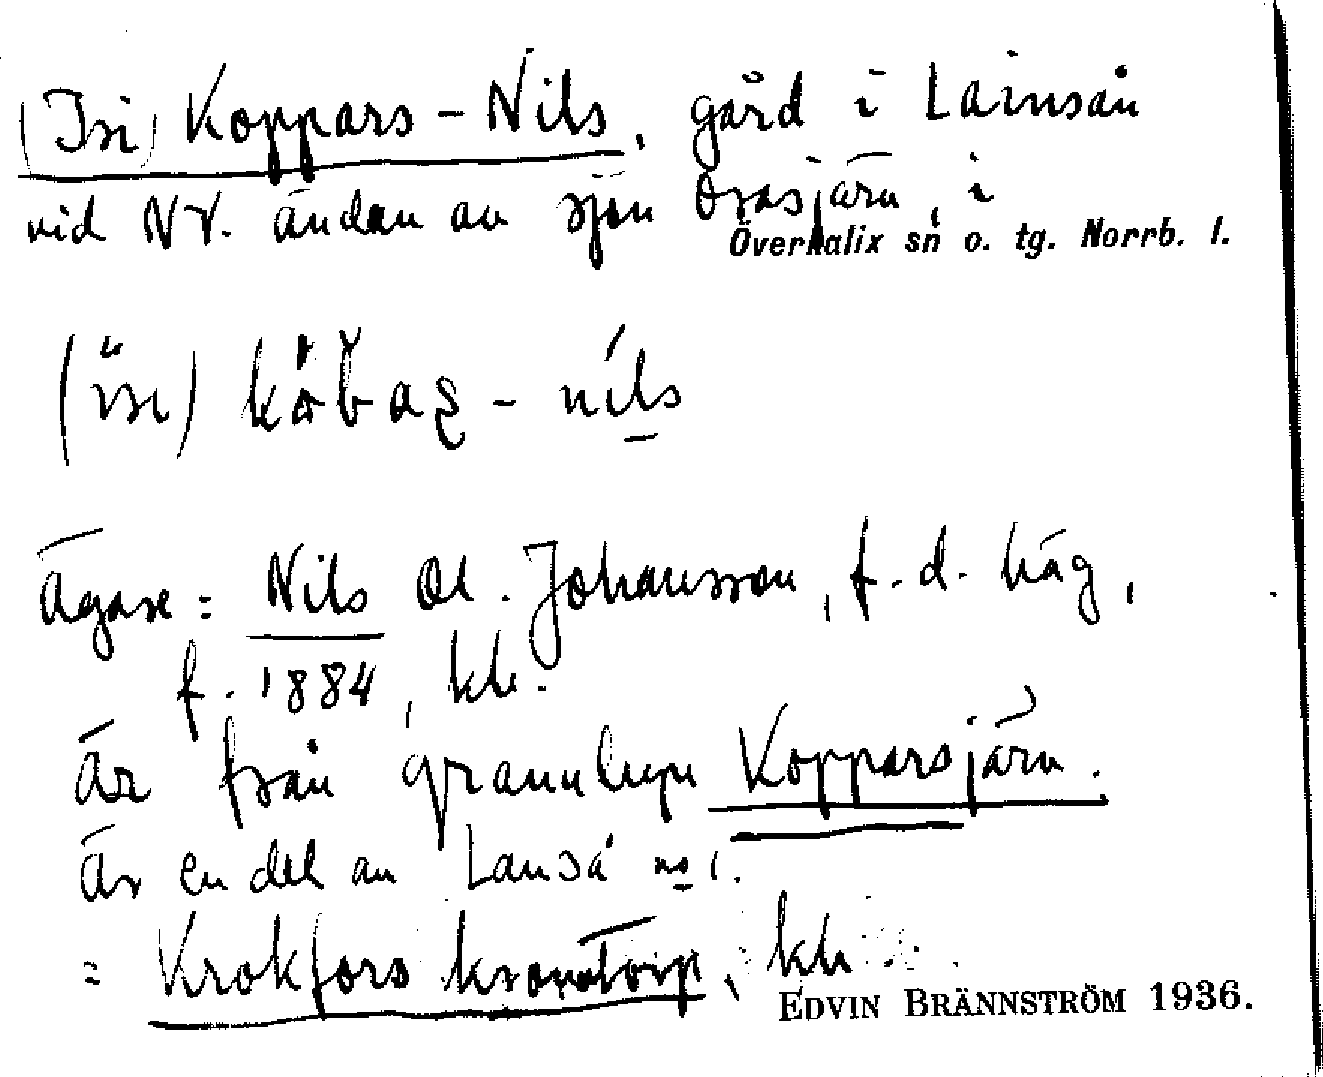 (Isi) Koppars-Nils, gård i Lainsån
vid NV. ändan av sjön Orasjärv, i
Överkalix sn o. tg. Norrb. l.
(ısı) - níls
Ägare: Nils Ol. Johansson, f. d. häg,
f. 1884, kh.
Är från grannbyn Kopparsjärv.
Är en del av Lanså no 1.
= Krokfors kronotorp, kh
EDVIN BRÄNNSTRÖM 1936.